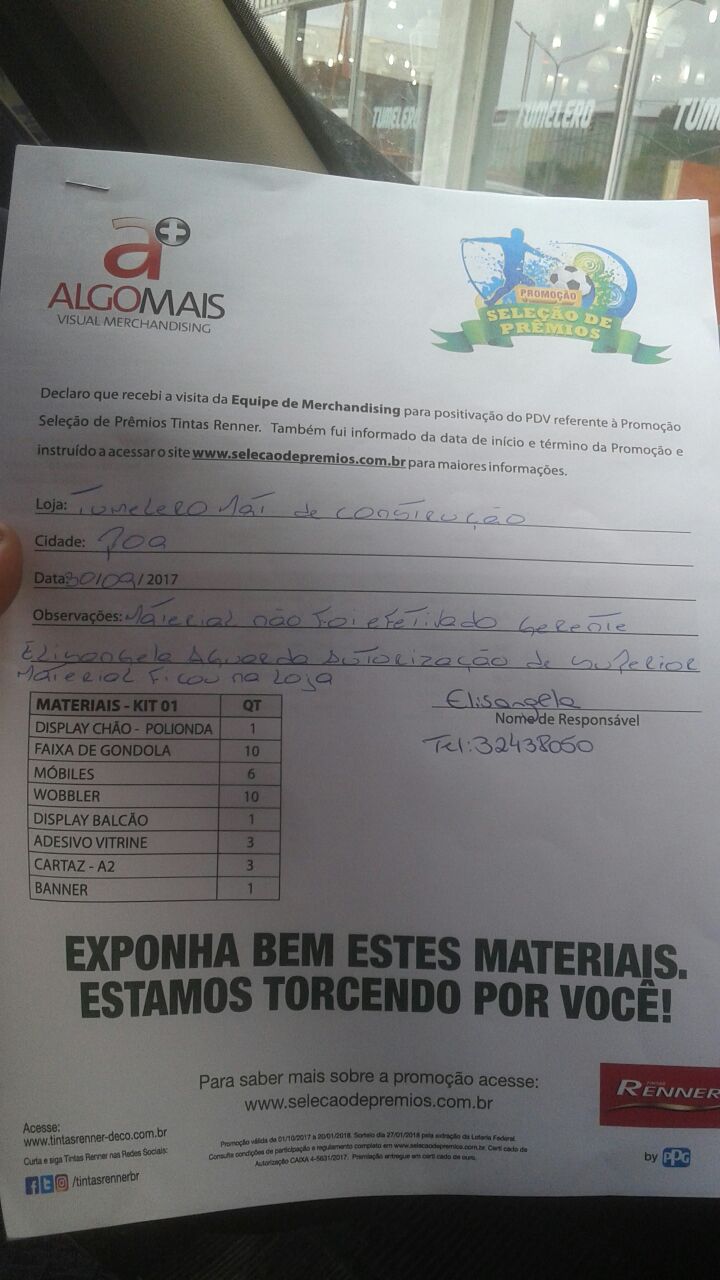 TUMELERO TUMELERO TUM
a+
ALGOMAIS
VISUAL MERCHANDISING
PROMOÇÃO
SELEÇÃO DE
PRÊMIOS
Declaro que recebi a visita da Equipe de Merchandising para positivação do PDV referente à Promoção
Seleção de Prêmios Tintas Renner. Também fui informado da data de início e término da Promoção e
instruído a acessar o site www.selecaodepremios.com.br para maiores informações.
Loja: Tumelero Mat de construção
Cidade: Poa
Data: 30/09/2017
Observações: Material não foi efetivado Gerente
Elisangela Aguarda Autorização de superior
Material Ficou na Loja
MATERIAIS - KIT 01 QT
DISPLAY CHÃO - POLIONDA 1
FAIXA DE GONDOLA 10
MÓBILES 6
WOBBLER 10
DISPLAY BALCÃO 1
ADESIVO VITRINE 3
CARTAZ - A2 3
BANNER 1
Elisangela
Nome de Responsável
Tel: 32438050
EXPONHA BEM ESTES MATERIAIS.
ESTAMOS TORCENDO POR VOCÊ!
Para saber mais sobre a promoção acesse:
www.selecaodepremios.com.br
TINTAS
RENNER
by PPG
Acesse:
www.tintasrenner-deco.com.br
Curta e siga Tintas Renner nas Redes Sociais:
/tintasrennerbr
Promoção válida de 01/10/2017 a 20/01/2018. Sorteio dia 27/01/2018 pela extração da Loteria Federal.
Consulte condições de participação e regulamento completo em www.selecaodepremios.com.br. Certi cado de
Autorização CAIXA 4-5631/2017. Premiação entregue em certi cado de ouro.